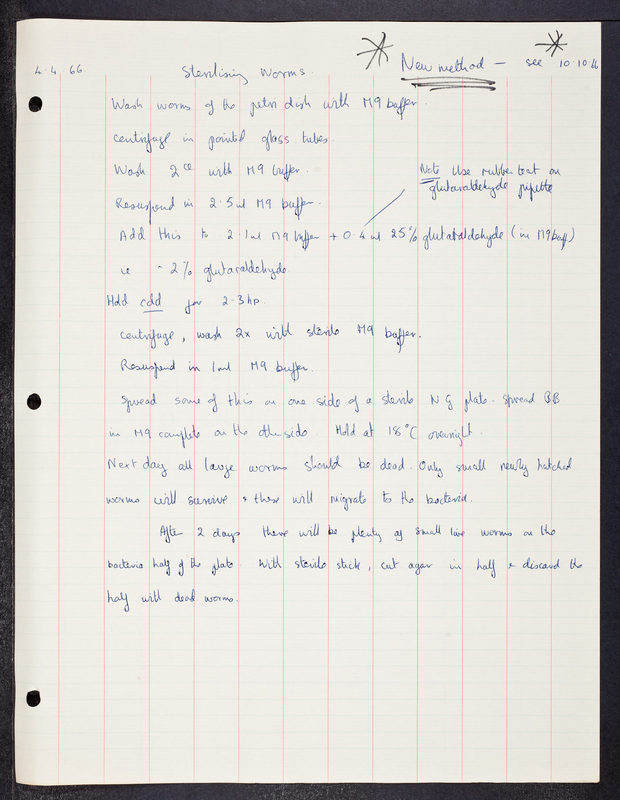 4.4.66. Sterilising Worms. New method - see 10.10.66
Wash worms of the petri dish with M9 buffer.
Centrifuge in pointed glass tubes.
Wash 2ce with M9 buffer.
Note Use rubber teat on
glutaraldehyde pipette
Resuspend in 2.5ml M9 buffer.
Add this to 2.1ml M9 buffer + 0.4 ml 25% glutaraldehyde (in M9 buff)
ie ~ 2% glutaraldehyde.
Hold cold for 2-3 hs.
Centrifuge, wash 2x with sterile M9 buffer.
Resuspend in 1ml M9 buffer.
Spread some of this on one side of a sterile NG plate. Spread BB
in M9 complete on the other side. Hold at 18°C overnight.
Next day all large worms should be dead. Only small newly hatched
worms will survive & these will migrate to the bacteria.
After 2 days there will be plenty of small live worms on the
bacteria half of the plate. With sterile stick, cut agar in half & discard the
half with dead worms.